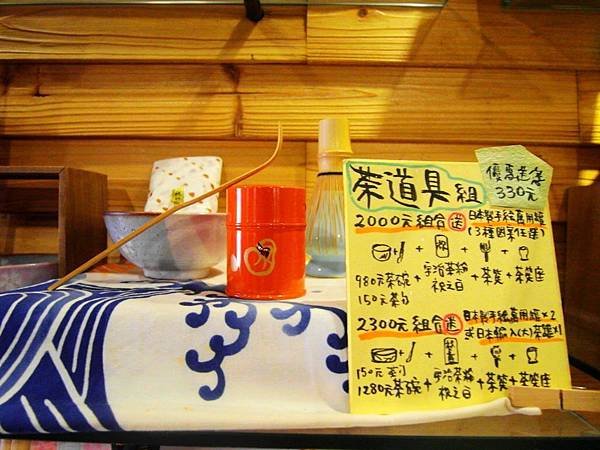 茶道具組
優惠送舍
330元
2000元組合送 日本製手絵萬用罐
(3種図案任選)
980元茶碗 + 宇治茶粉 + 茶筅 + 茶筅座
150元茶勺 祝之白
2300元組合送 日本製手絵萬用罐×2
或日本輸入(大)茶篩×1
150元茶勺 + 宇治茶粉 + 茶筅 + 茶筅座
1280元茶碗 祝之白